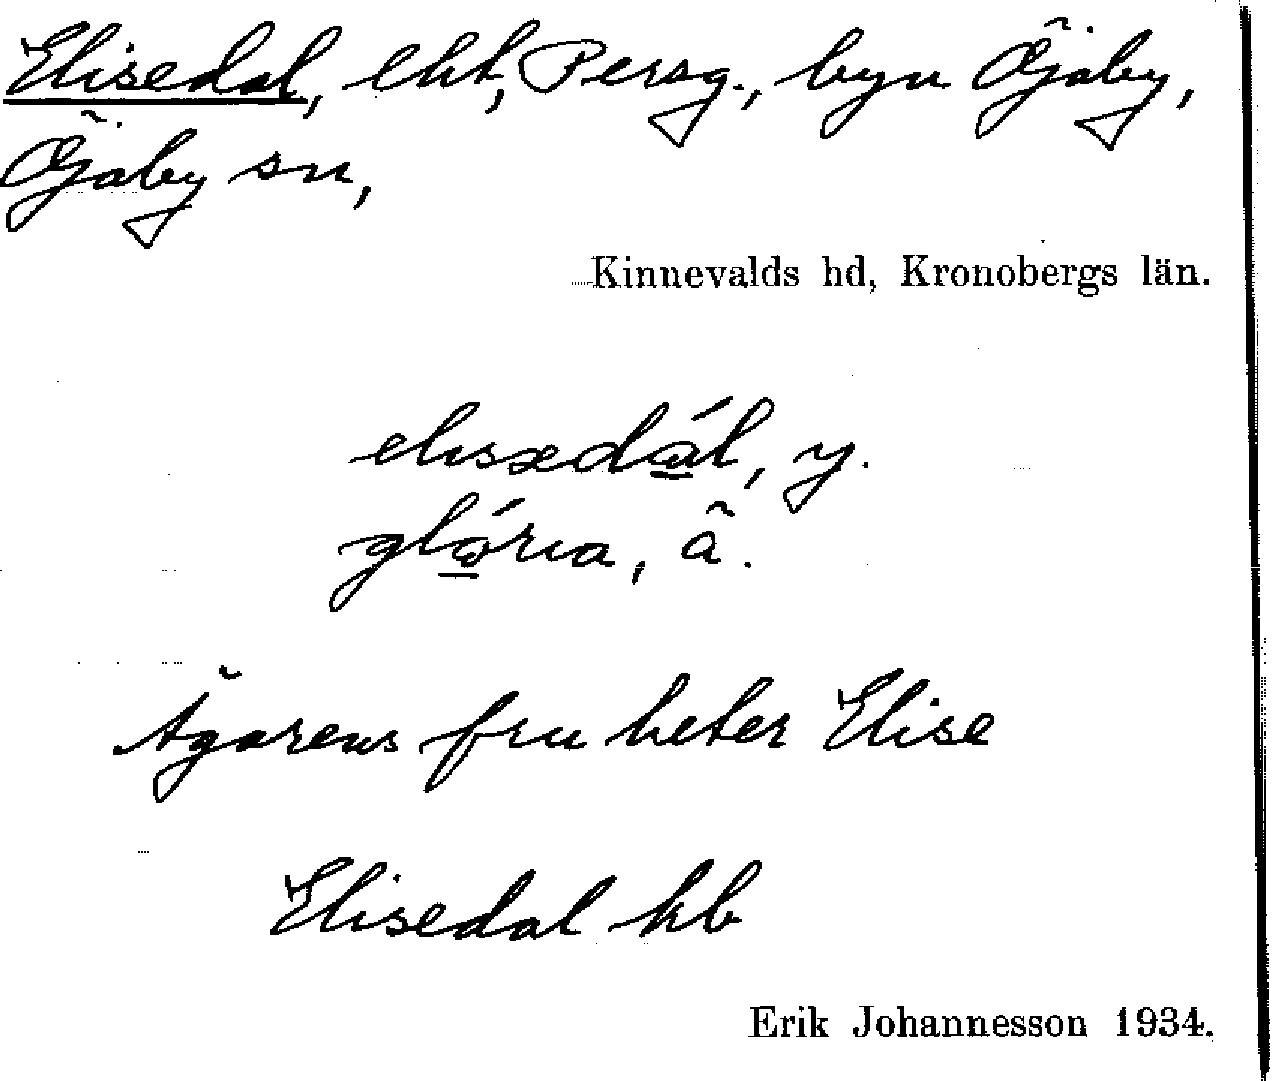 Elisedal, lht, Persg., byn Öjaby,
Öjaby sn,
Kinnevalds hd, Kronobergs län.
elısædál, y.
glórıa, ä.
Ägarens fru heter Elise
Elisedal kb
Erik Johannesson 1934.